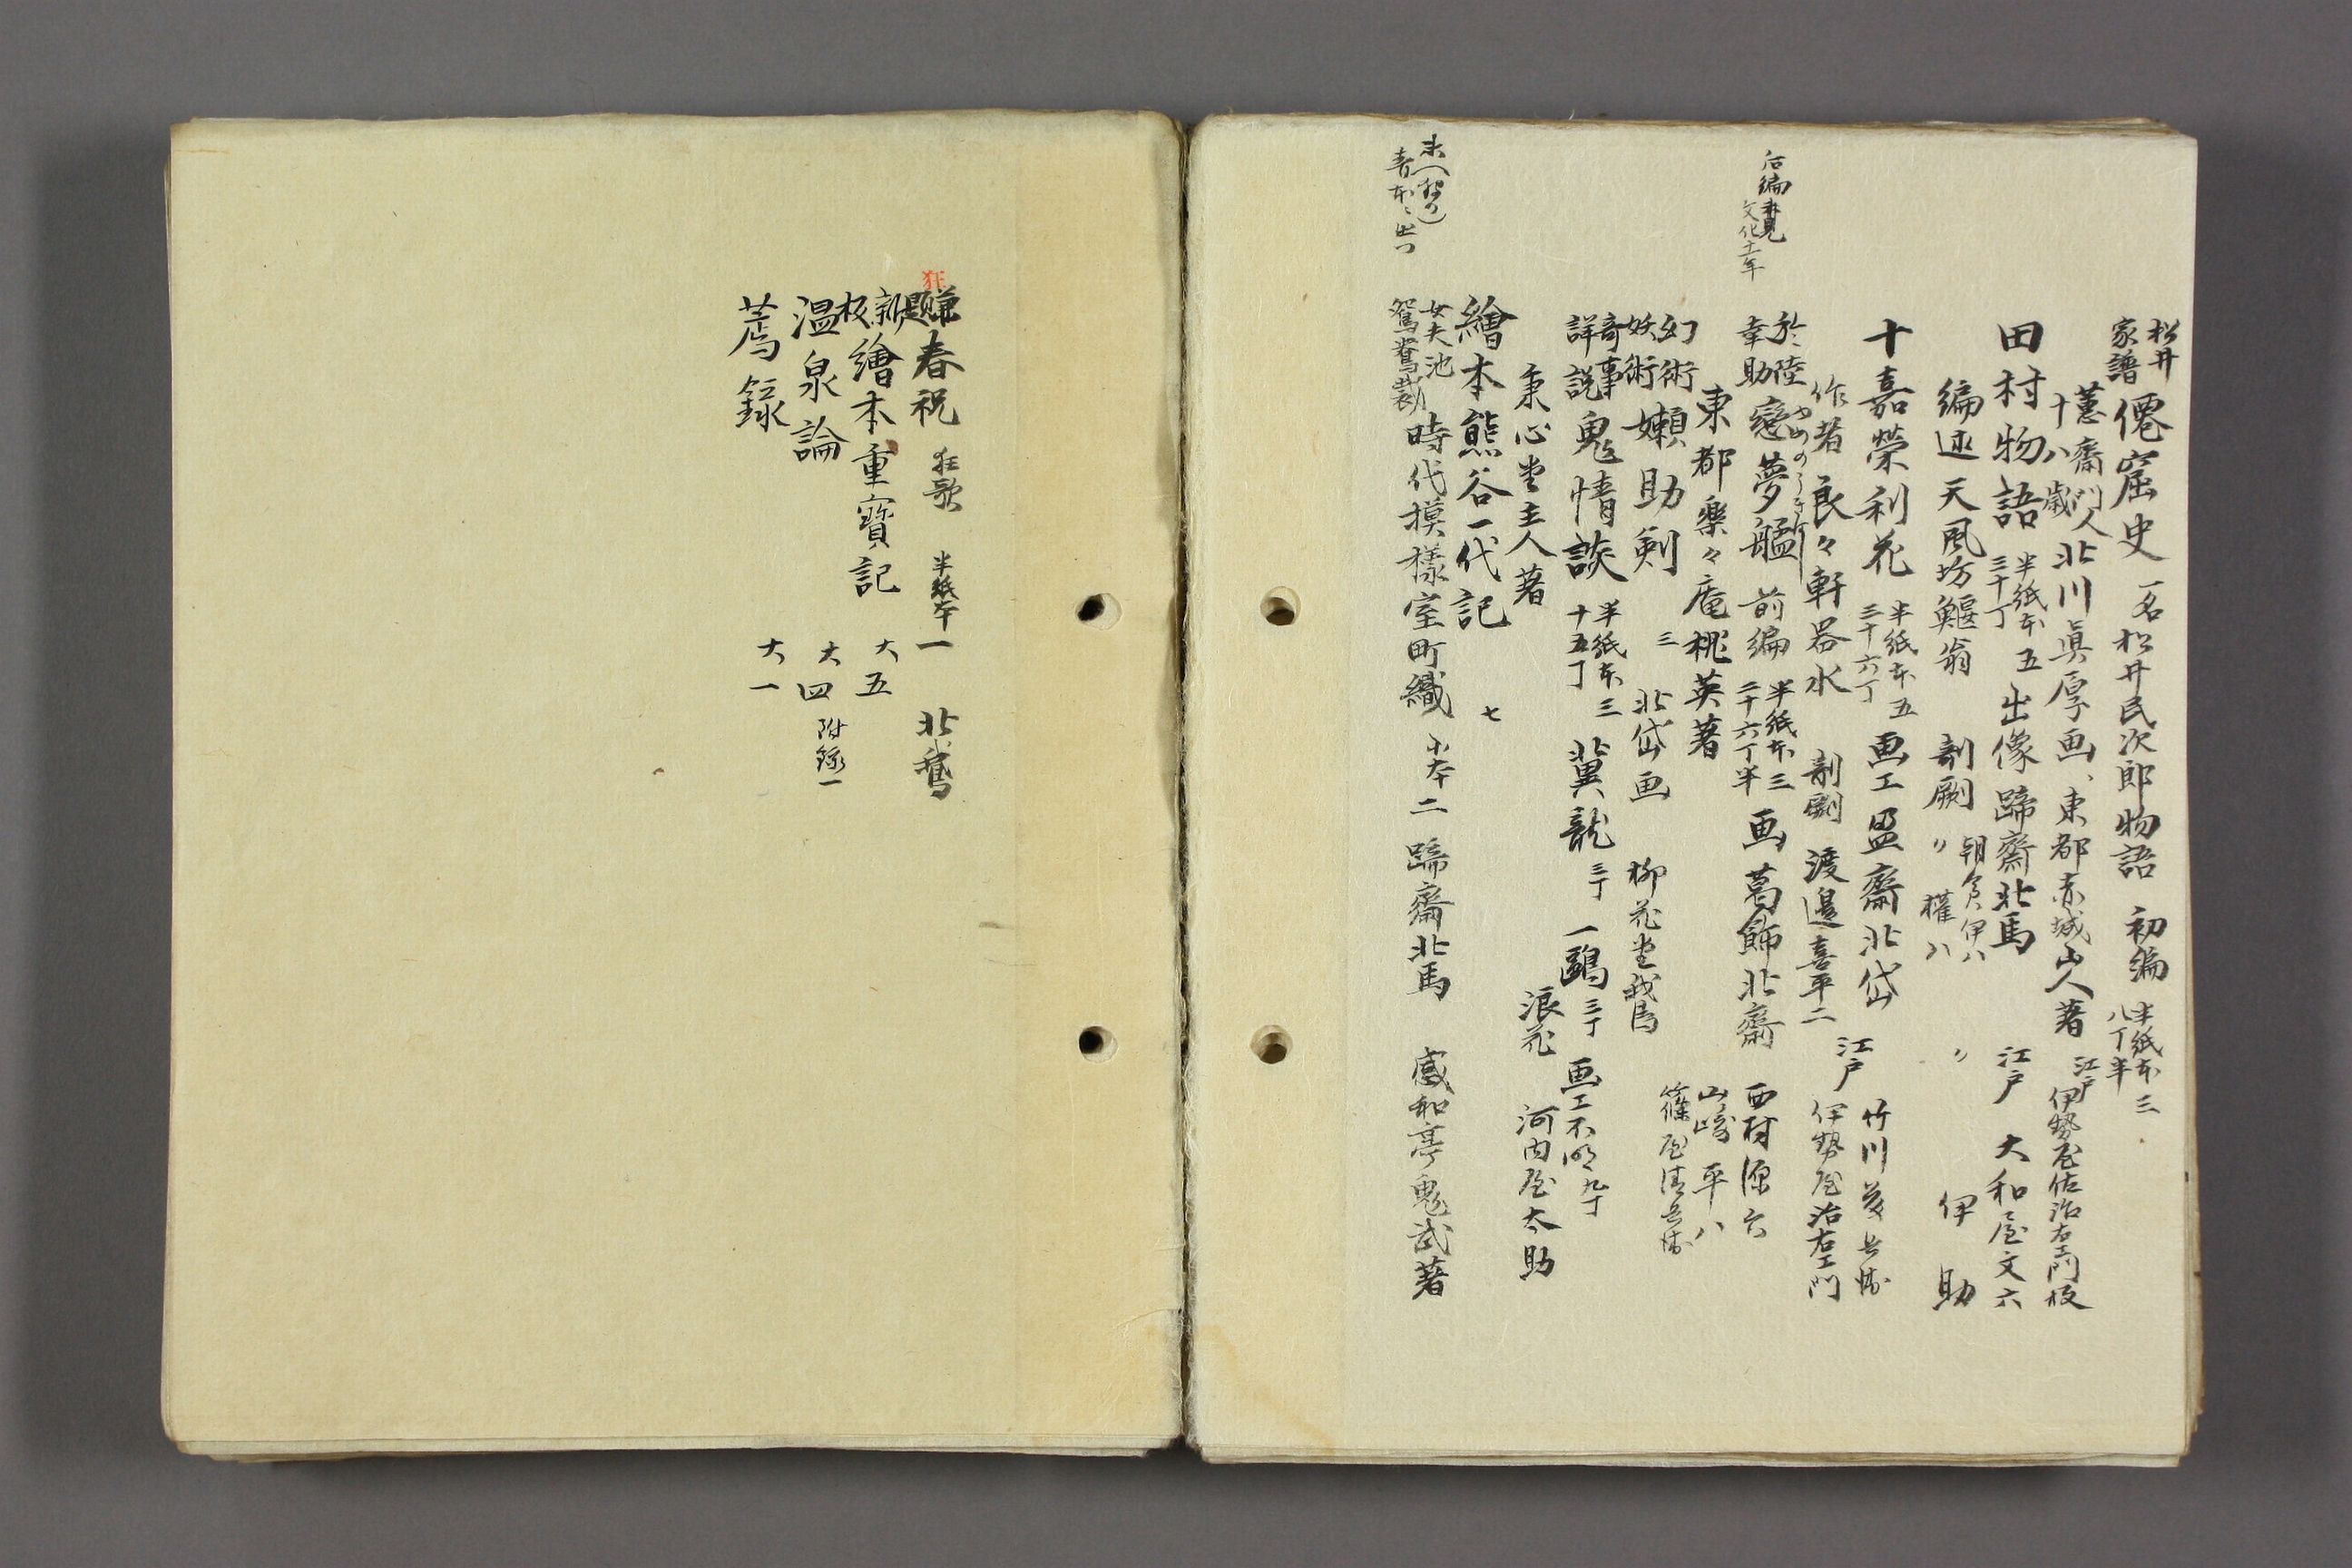 松井家譜 僊窟史 一名松井民次郎物語 初編 半紙本三 八丁半
蕙齋門人十八歳 北川真厚画、東都赤城山人著 江戸 伊勢屋佐治右エ門板
田村物語 半紙本五 三十丁 出像 蹄齋北馬 江戸 大和屋文六
編述 天風坊鰋翁 剞劂 朝倉伊八 〃 權八 〃 伊助
十嘉榮利花 半紙本五 三十六丁 画工 盈齋北岱 江戸 竹川茂兵衛
作者 良々軒器水 剞劂 渡邉喜平二 伊勢屋治右エ門
後編未見 文化十一年
於陸幸助 戀夢艦 前編 半紙本三 二十六丁半 画 葛飾北齋 西村源六
東都樂々庵桃英著 山﨑平八
幻術妖術 嬾助剣 三 北岱画 柳花堂我鳥 篠屋清兵衛
奇事詳説 鬼情談 半紙本三 十五丁 冀龍 三丁 一鷗 三丁 画工不明 九丁
東心堂主人著 浪花 河内屋太助
繪本熊谷一代記 七
女夫池鴛鴦裁 時代摸樣室町織 小本二 蹄齋北馬 感和亭鬼武著
狂
賺題 春祝 狂歌 半紙本一 北鵞
新板 繪本重寶記 大五
温泉論 大四 附録一
蔫錄 大一